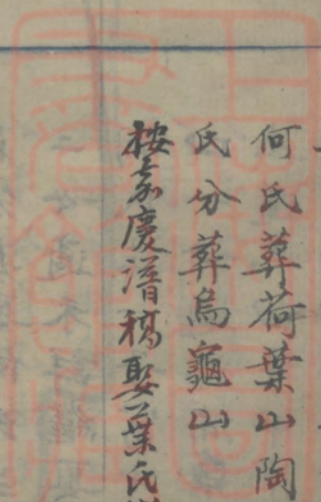 何氏葬荷葉山陶
氏分葬烏龜山
按嘉慶譜稿娶葉氏